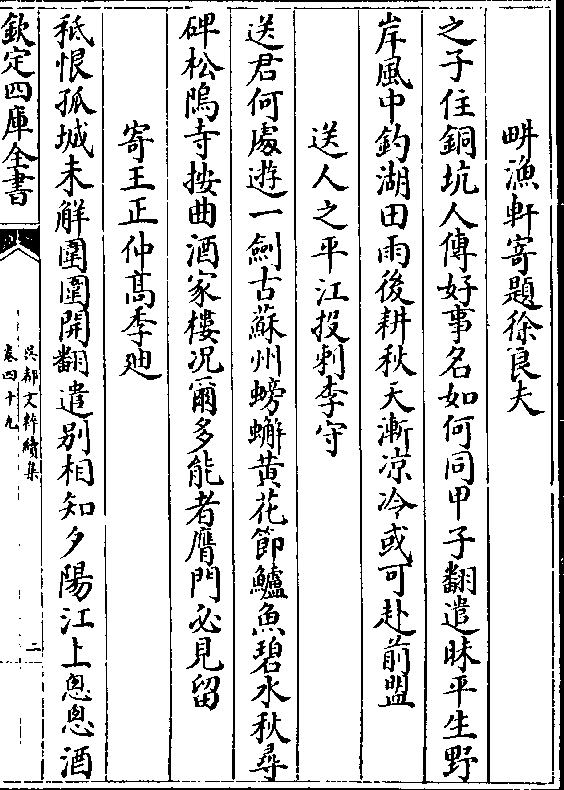 畊漁軒寄題徐良夫
之子住銅坑人傳好事名如何同甲子翻遣昧平生野
岸風中釣湖田雨後耕秋天漸凉冷或可赴前盟
送人之平江投刺李守
送君何處遊一劍古蘇州螃蠏黄花節鱸魚碧水秋尋
碑松隖寺按曲酒家樓况爾多能者膺門必見留
寄王正仲髙季廸
秪恨孤城未解圍圍開翻遣别相知夕陽江上悤悤酒
欽定四庫全書
吳都文粹續集
卷四十九
二